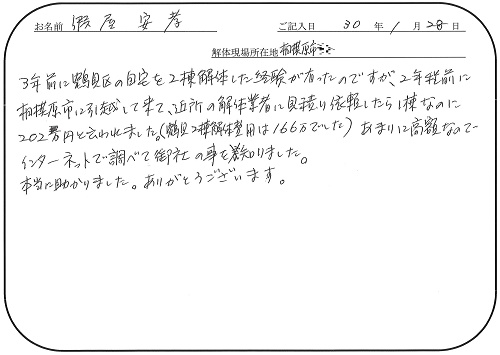 お名前 假屋 安孝 ご記入日 30 年 1 月 28 日
解体現場所在地 相模原市
3年前に鶴見区の自宅を2棟解体した経験が有ったのですが、2年程前に
相模原市に引越して来て、近所の解体業者に見積り依頼したら1棟なのに
202萬円と言われました。(鶴見2棟解体費用は166万でした) あまりに高額なので
インターネットで調べて御社の事を知りました。
本当に助かりました。ありがとうございます。